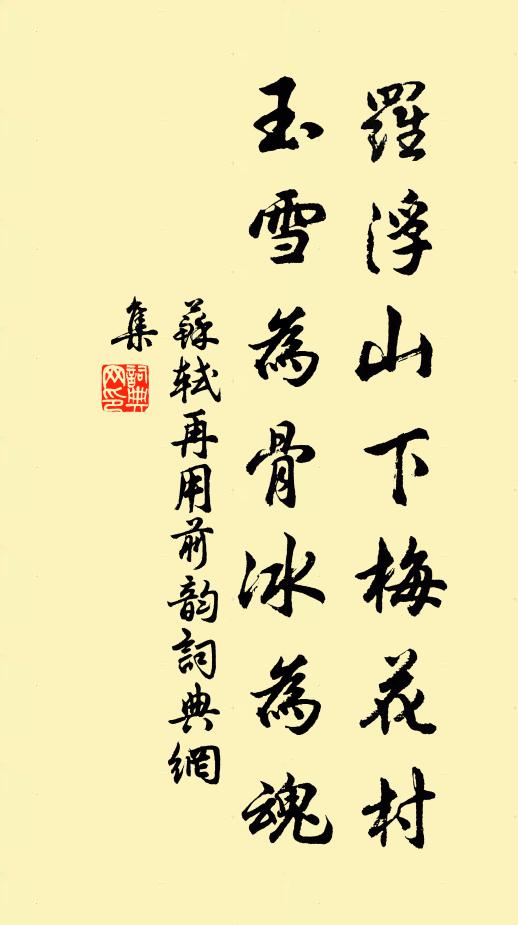 羅浮山下梅花村
玉雪為骨冰為魂
蘇軾再用前韵詞典網
集
詞典
网印